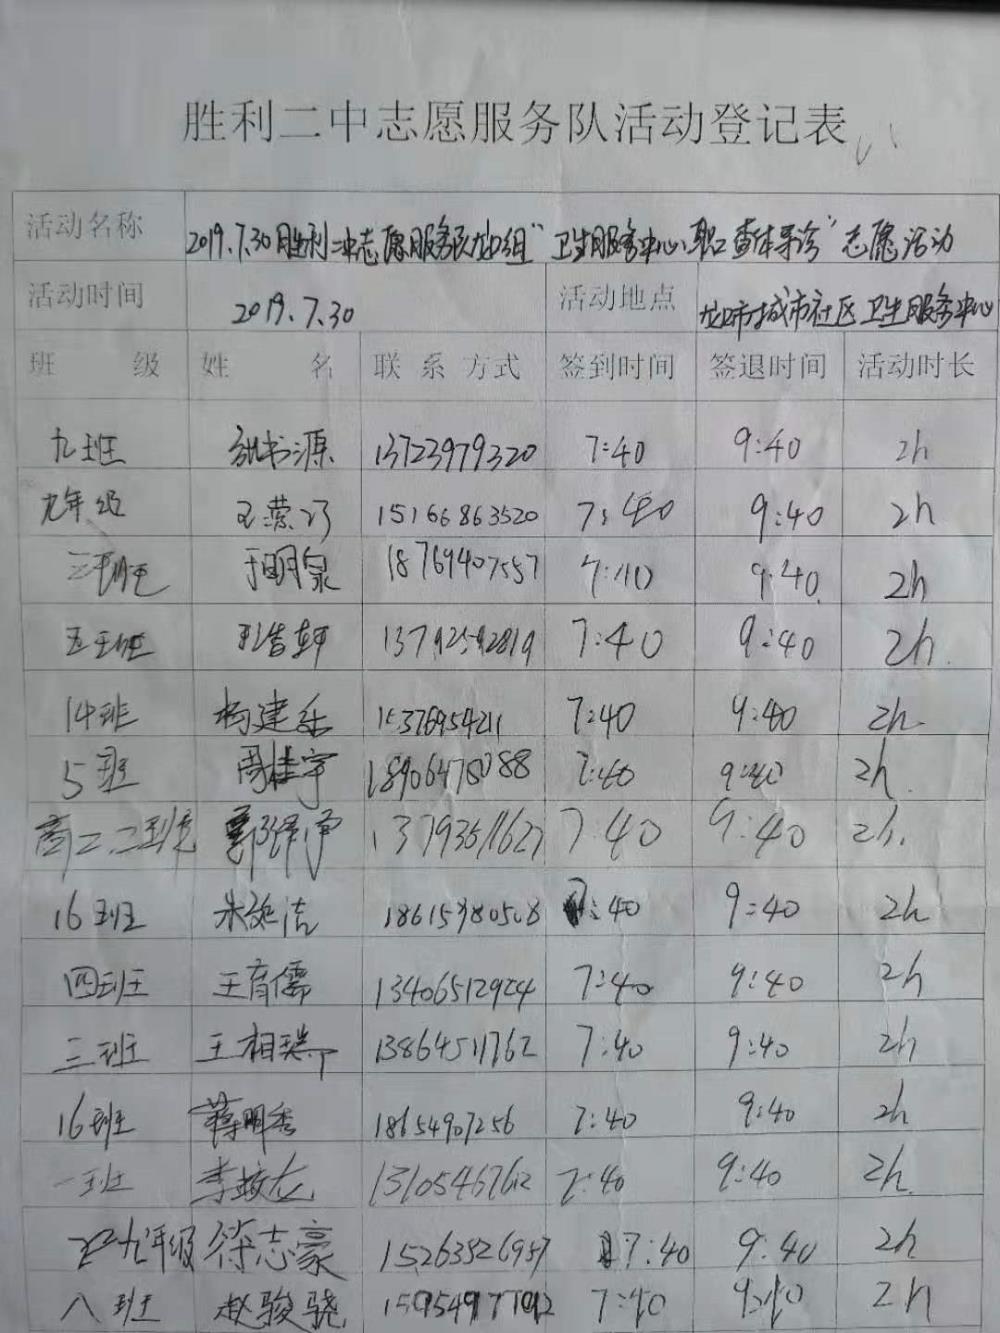 胜利二中志愿服务队活动登记表
活动名称 2019.7.30胜利二中志愿服务队龙口组“卫生服务中心入职查体导诊”志愿活动
活动时间 2019.7.30 活动地点 龙口市城市社区卫生服务中心
班 级 姓 名 联 系 方式 签到时间 签退时间 活动时长
九班 书源 13723979320 7:40 9:40 2h
九年级 王 15166863520 7:40 9:40 2h
三班 于明泉 18769407557 7:40 9:40 2h
五班 浩轩 13792592819 7:40 9:40 2h
14班 杨建乐 15376954211 7:40 9:40 2h
5班 周桂宇 18906478088 7:40 9:40 2h
高二.二班 郭泽 13793511627 7:40 9:40 2h
16班 朱 洁 18615980508 7:40 9:40 2h
四班 王育儒 13406512924 7:40 9:40 2h
三班 王相瑞 13864511762 7:40 9:40 2h
16班 蒋明秀 18654907256 7:40 9:40 2h
一班 李 龙 7:40 9:40 2h
九年级 徐志豪 15263826957 7:40 9:40 2h
八班 赵骏骁 7:40 9:40 2h